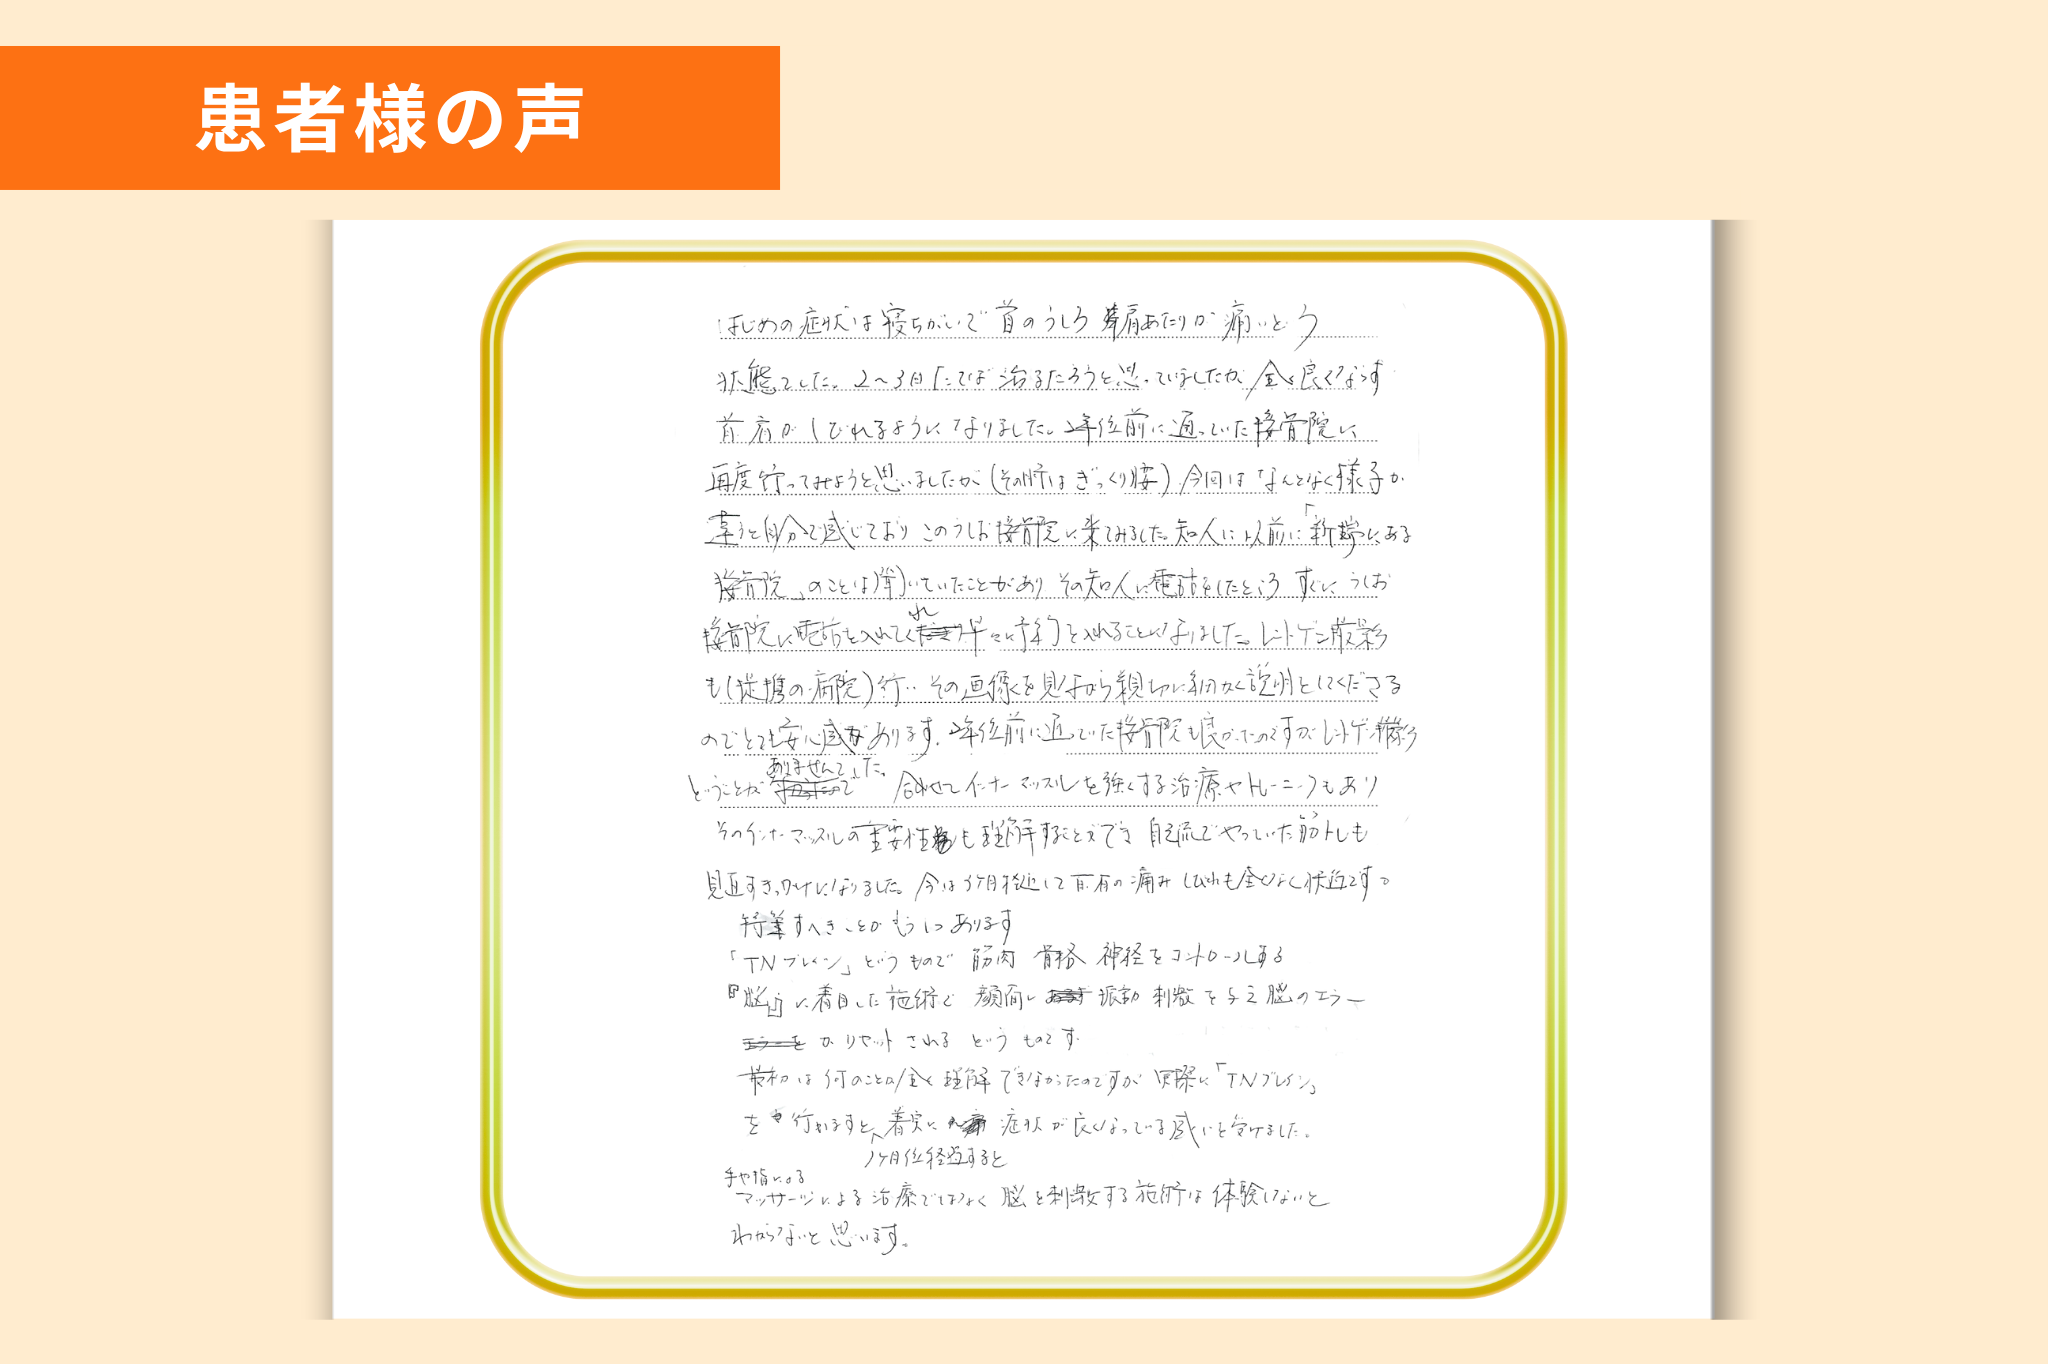 患者様の声
はじめの症状は寝ちがいで首のうしろ 肩あたりが痛いという
状態でした。2〜3日たてば治るだろうと思っていましたが、全く良くならず
首 肩がしびれるようになりました。2年位前に通っていた接骨院に
再度行ってみようと思いましたが(その時はぎっくり腰)今回はなんとなく様子が
違うと自分で感じており このうしお接骨院に来てみました。知人に以前に「新端にある
接骨院」のことは聞いていたことがあり その知人に電話をしたところ すぐに うしお
接骨院に電話を入れてくれ早々に予約を入れることになりました。レントゲン撮影
も(提携の病院)行い その画像を見ながら親切に細かく説明をしてくださる
のでとても安心感があります。2年位前に通っていた接骨院も良かったのですがレントゲン撮影
ということがありませんでした。 合わせてインナーマッスルを強くする治療やトレーニングもあり
そのインナーマッスルの重要性も理解することができ 自己流でやっていた筋トレも
見直すきっかけになりました。今は3ヶ月経過して首肩の痛み しびれも全くなく快適です。
特筆すべきことがもう1つあります
「TNブレイン」というもので 筋肉 骨格 神経をコントロールする
『脳』に着目した施術で 顔面に 振動 刺激を与え 脳のエラー
が リセットされる というものです。
最初は何のことか全く理解できなかったのですが 実際に「TNブレイン」
を 行いますと、1ヶ月位経過すると着実に 症状が良くなっている感じを受けました。
手や指による
マッサージによる治療ではなく 脳を刺激する施術は体験しないと
わからないと思います。